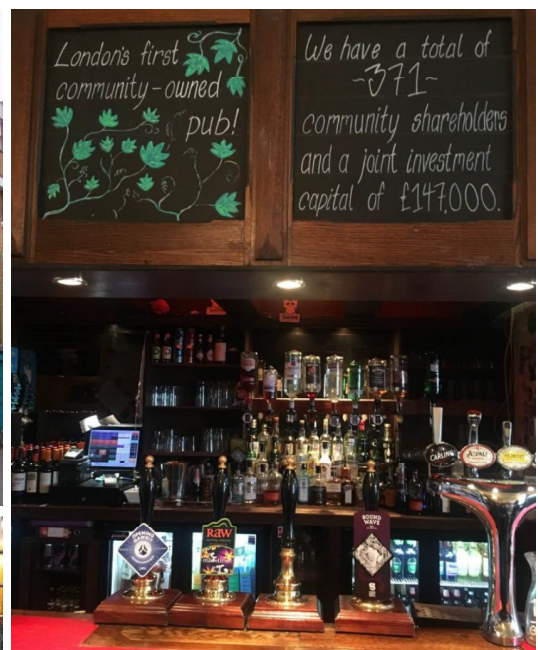 London's first
community-owned
pub!
We have a total of
~371~
community shareholders
and a joint investment
capital of £147,000.
CARLING
ASPALL
OPENING
GAMBIT
RAW
SOUND
WAVE